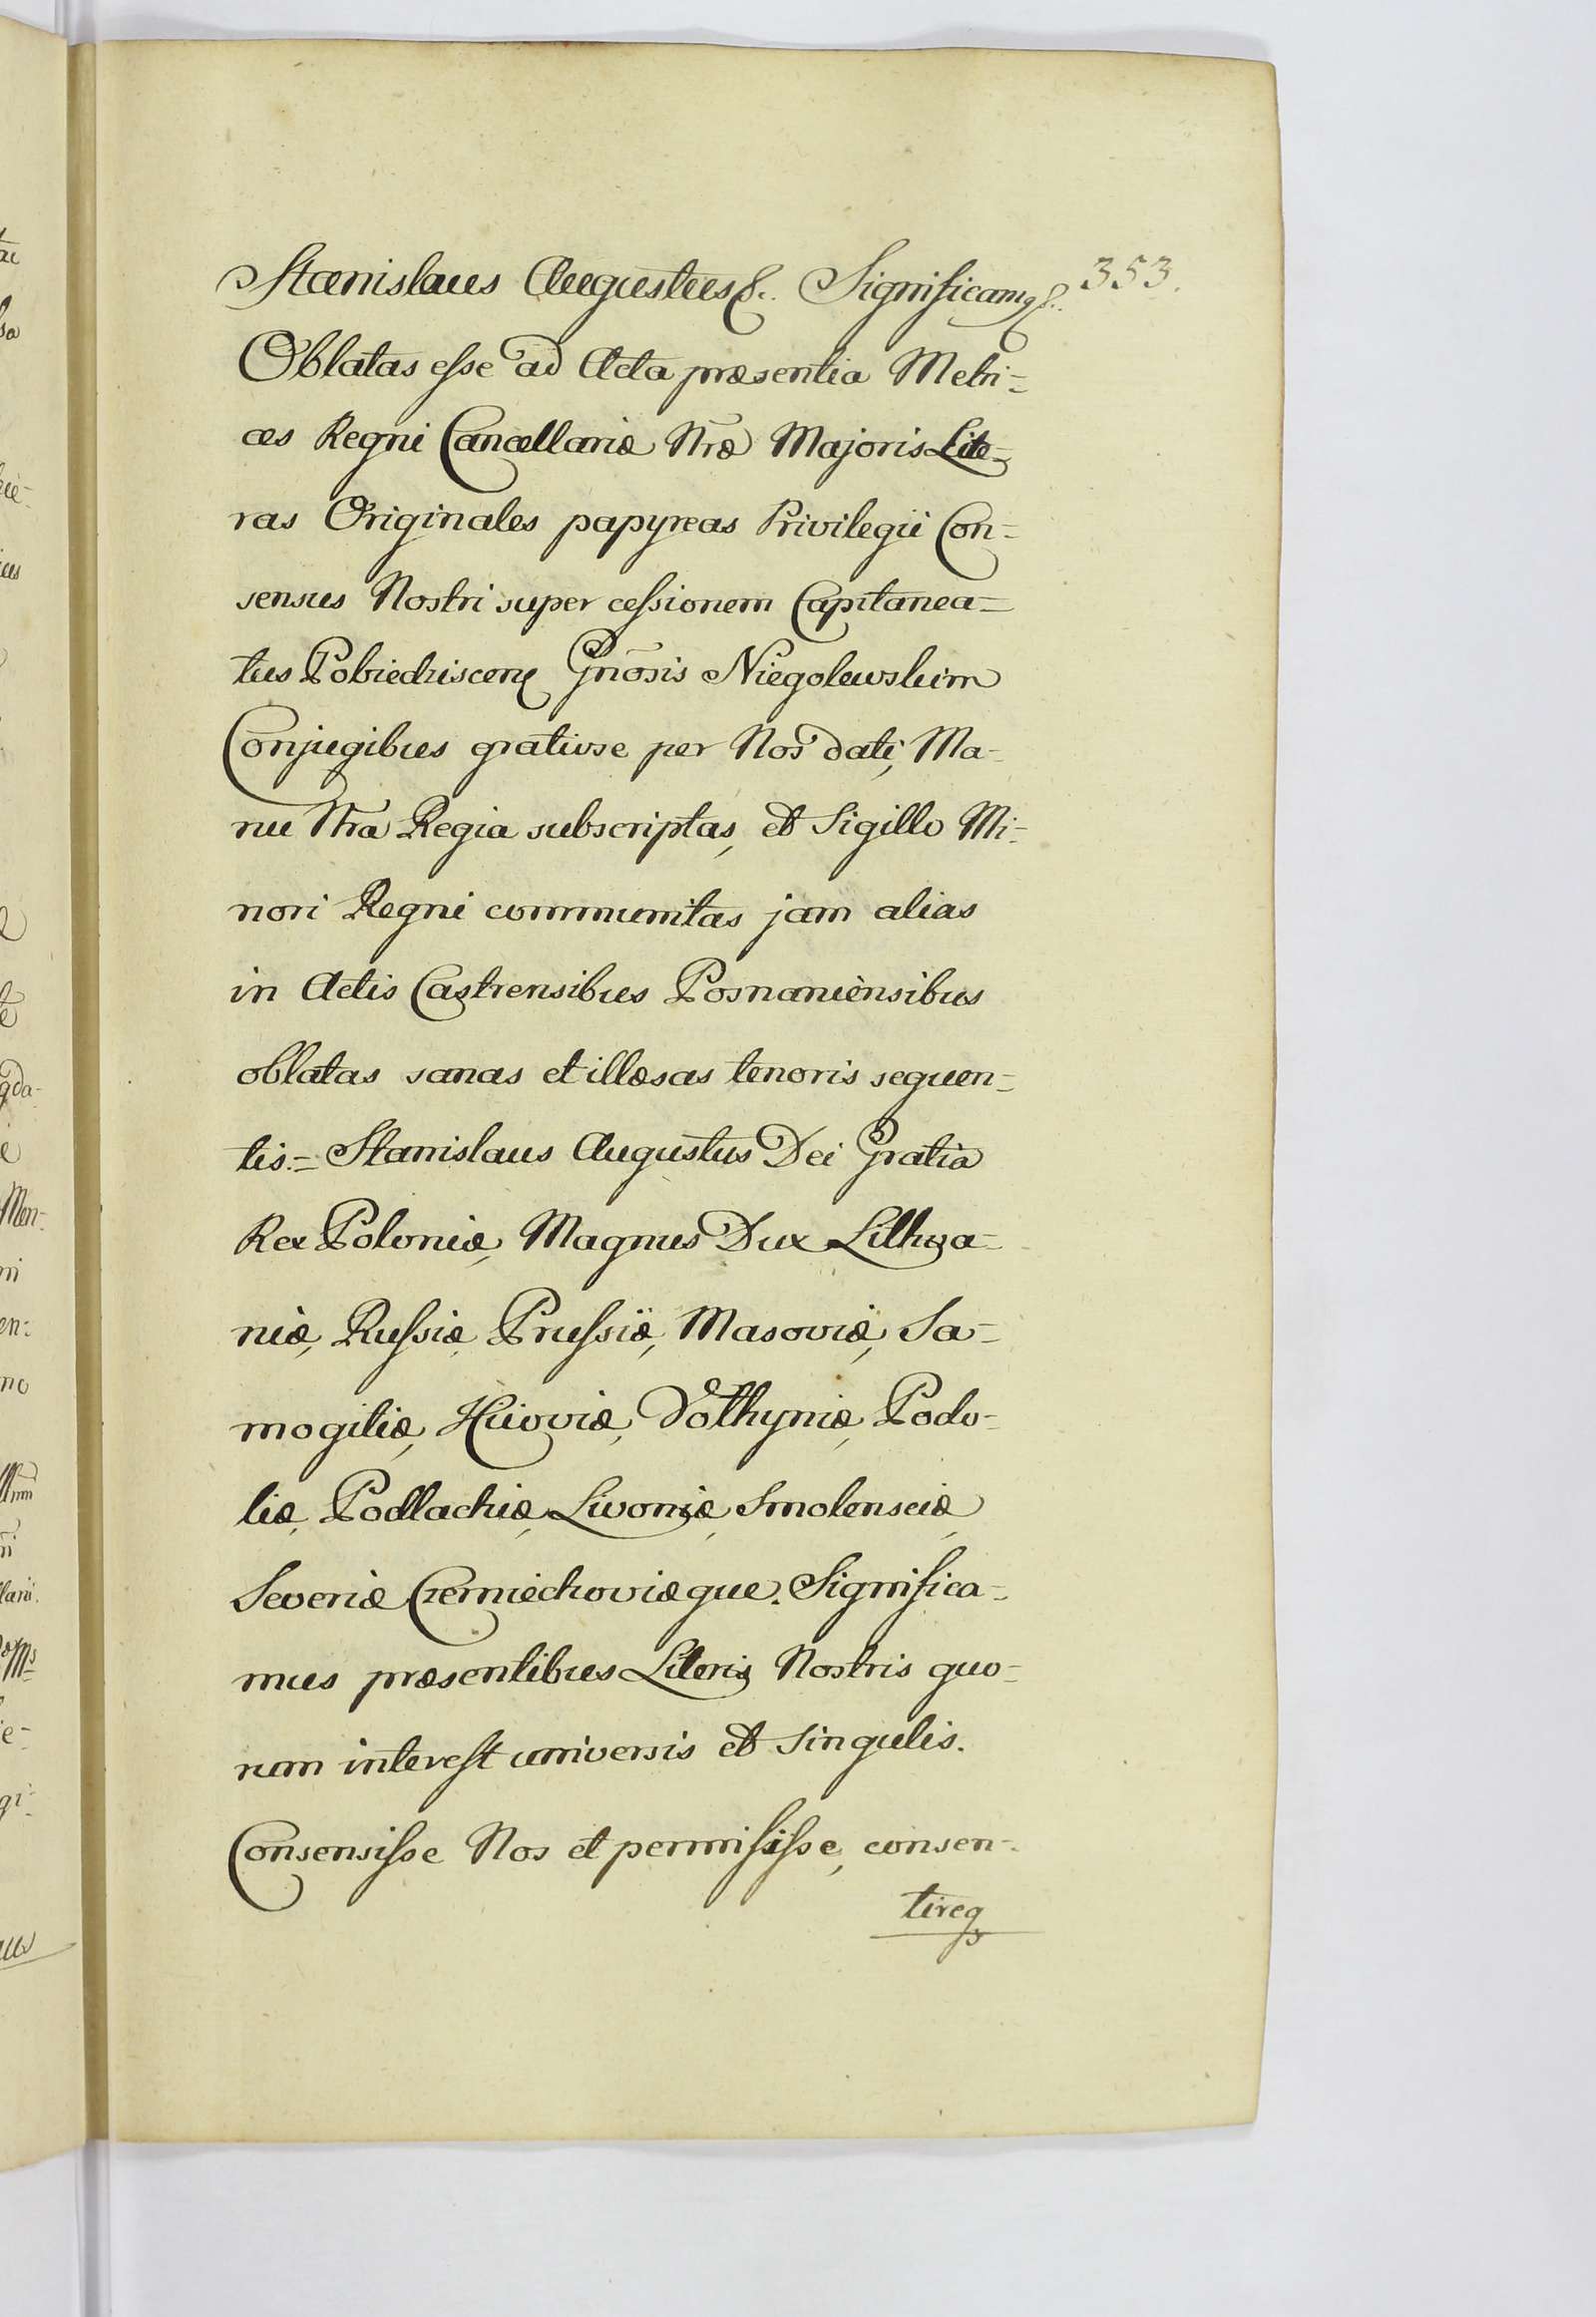 Stanislaus Augustus &c. Significamꝰ &c. 353.
Oblatas esse ad Acta præsentia Metri=
ces Regni Cancellariæ Nræ Majoris Lite=
ras Originales papyreas Privilegii Con=
sensus Nostri super cessionem Capitanea=
tus Pobiedziscen Gnosis Niegolewskim
Conjugibus gratiose per Nos dati, Ma-
nu Nra Regia subscriptas, et Sigillo Mi=
nori Regni communitas jam alias
in Actis Castrensibus Posnaniensibus
oblatas sanas et illæsas tenoris sequen=
tis.= Stanislaus Augustus Dei Gratia
Rex Poloniæ, Magnus Dux Lithva=
niæ, Russiæ, Prussiæ, Masoviæ, Sa=
mogitiæ, Kiioviæ, Volhyniæ, Podo-
liæ, Podlachiæ, Livoniæ, Smolensciæ,
Severiæ Czerniechoviæque. Significa=
mus præsentibus Literis Nostris quo=
rum interest universis et singulis.
Consensisse Nos et permisisse, consen=
tireq